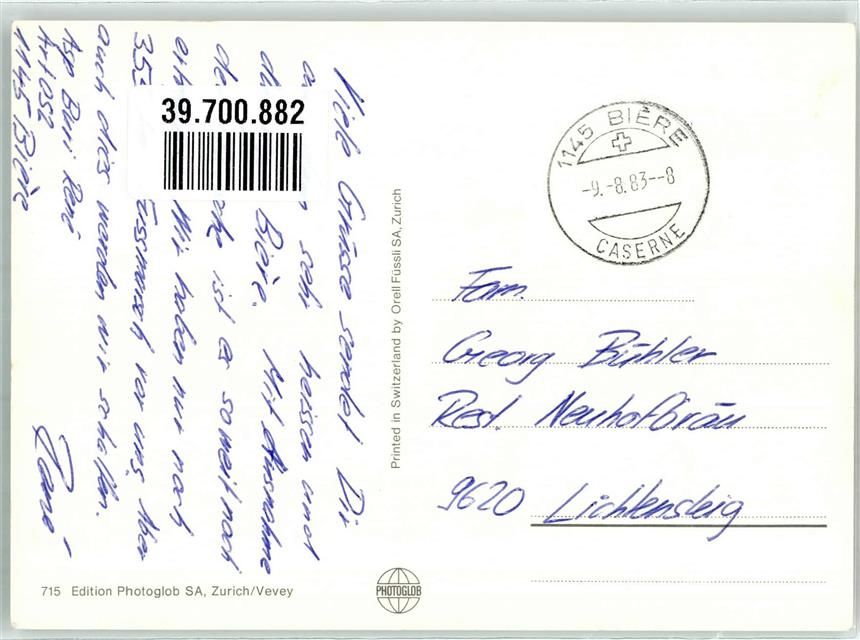 Viele Grüsse sendet Dir
sehr heissen und
Biere. Mit Ausnahme
ist es soweit noch
Wir haben nur noch
35 Eilmarsch vor uns. Aber
auch dies werden wir schaffen.
Asp Buri René
Art OS 2
1145 Bière
René
39.700.882
715 Edition Photoglob SA, Zurich/Vevey
Printed in Switzerland by Orell Füssli SA, Zurich
PHOTOGLOB
1145 BIÈRE
-9.-8.83--8
CASERNE
Fam.
Georg Bühler
Rest. Neuhofbräu
9620 Lichtensteig